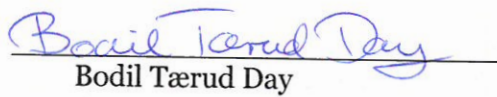 Bodil Tærud Day
Bodil Tærud Day